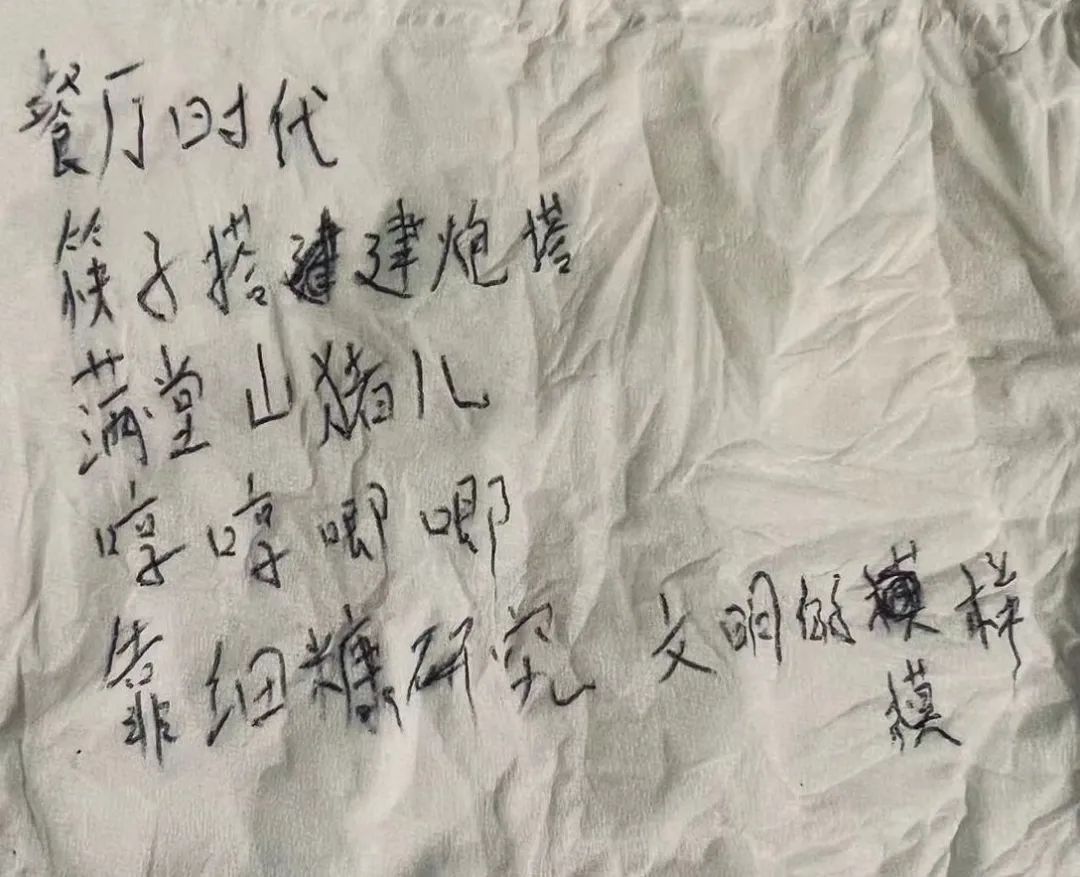 餐厅时代
筷子搭建炮塔
满堂山猪儿
哼哼唧唧
靠细糠研究 文明的模样